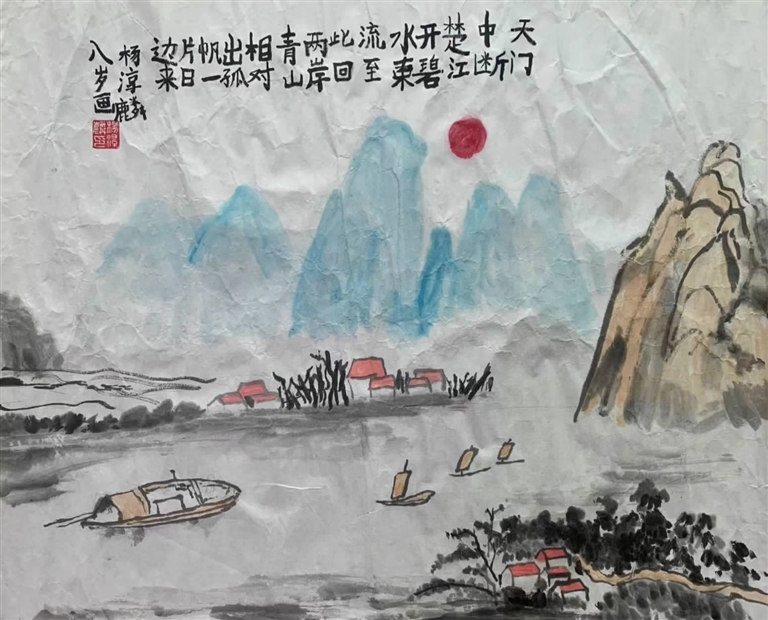 天门
中断
楚江
开碧
水東
流至
此回
两岸
青山
相对
出孤
帆一
片日
边来
杨淳麟
八岁画